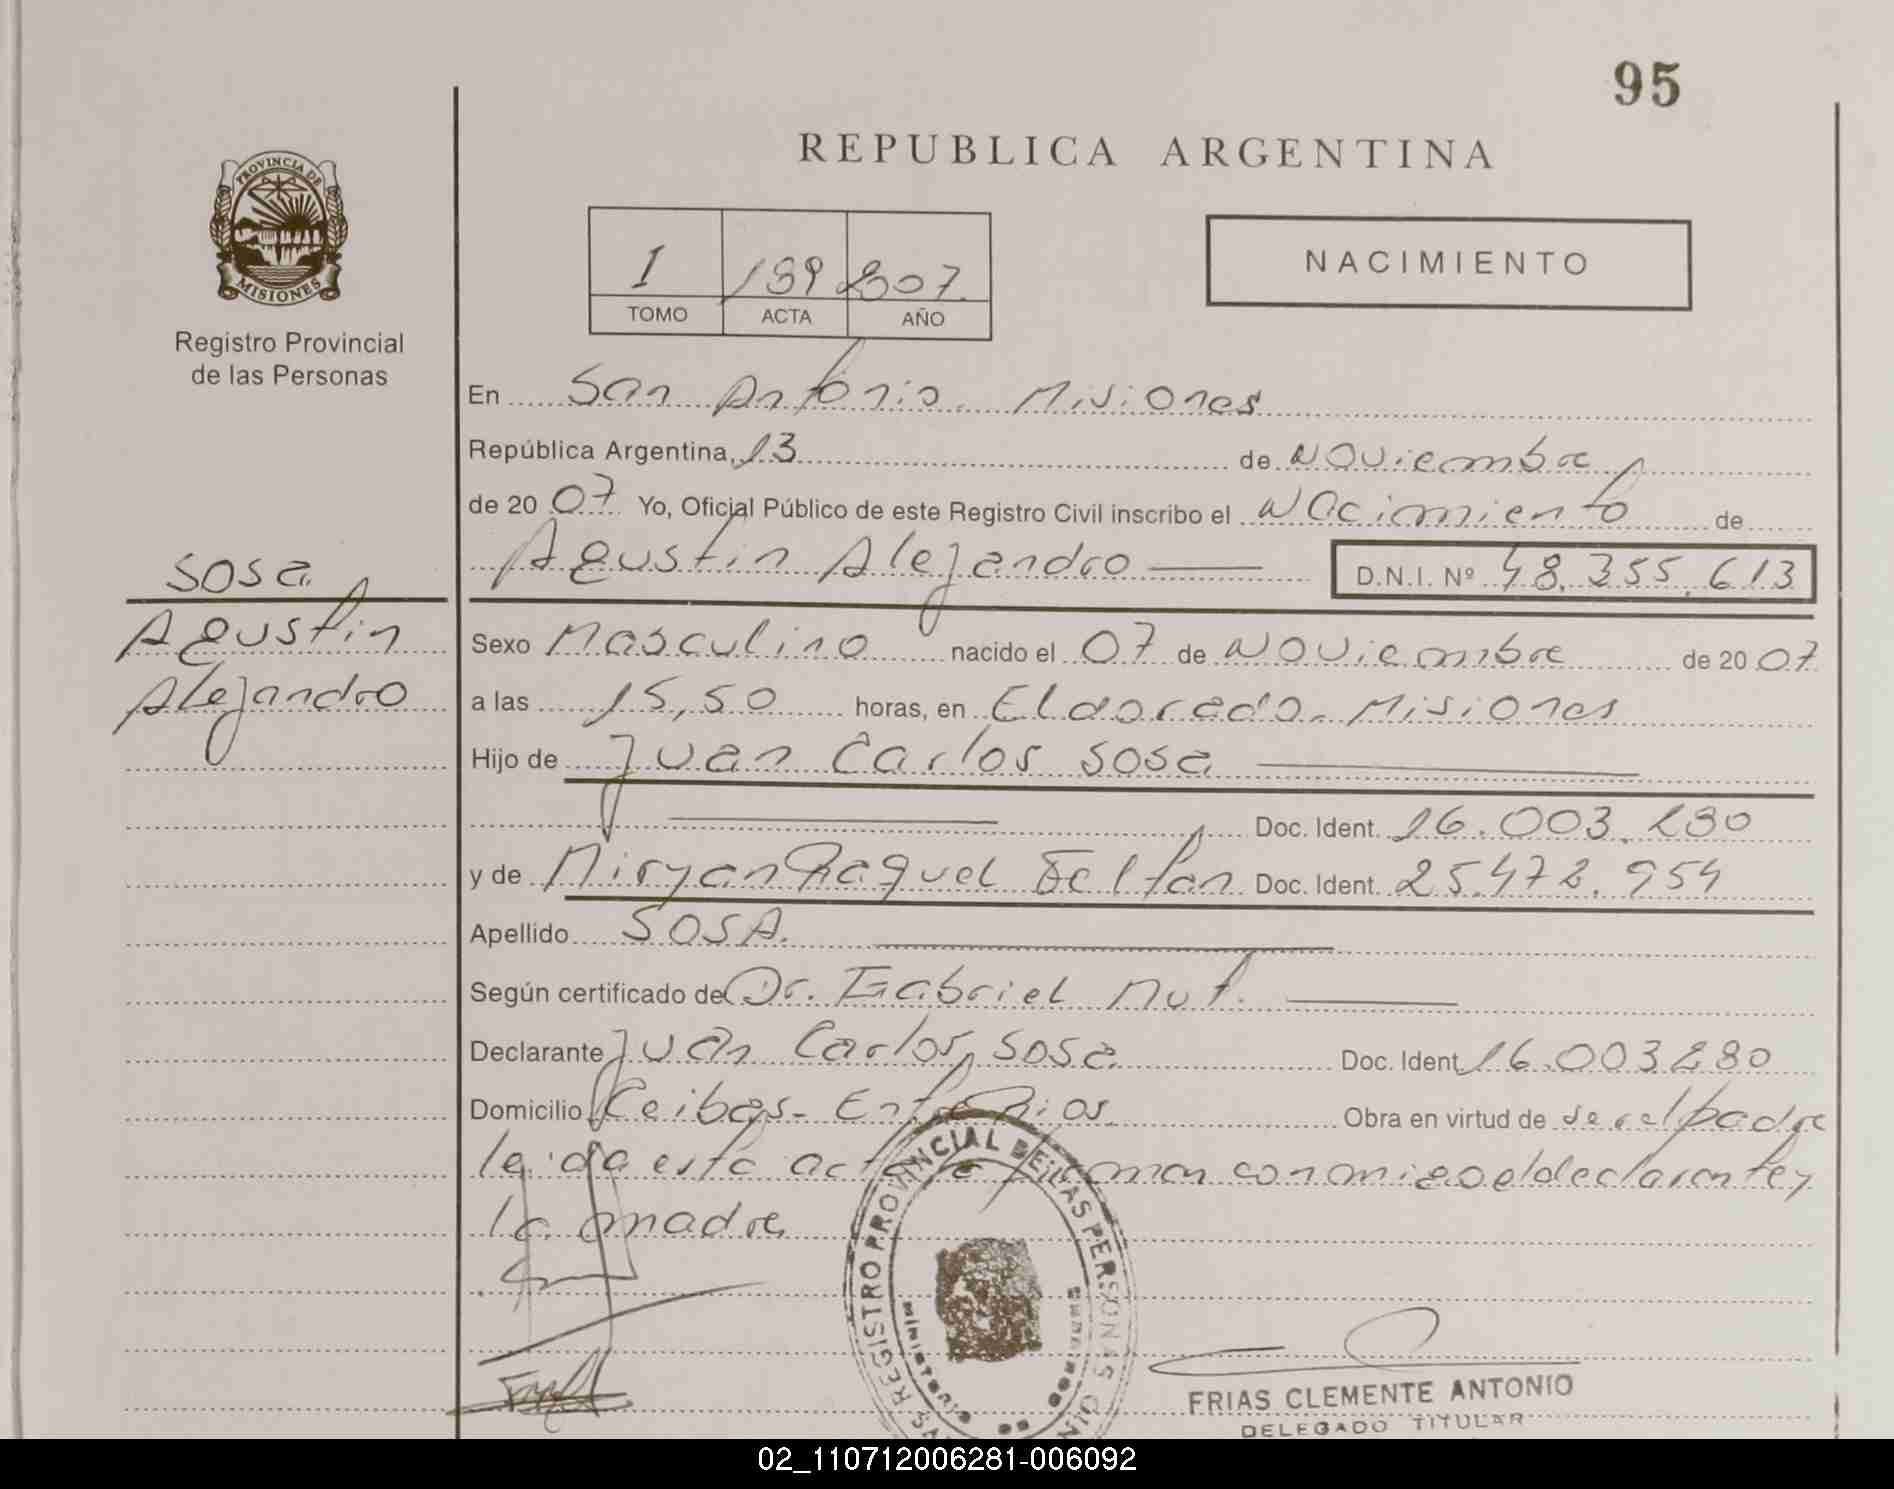 95
REPUBLICA ARGENTINA
PROVINCIA DE
MISIONES
Registro Provincial
de las Personas
I 189 2007.
TOMO ACTA AÑO
NACIMIENTO
En San Antonio. Misiones
República Argentina, 13 de Noviembre
de 20 07 Yo, Oficial Público de este Registro Civil inscribo el Nacimiento de
Agustin Alejandro D.N.I. Nº 48.355.613
Sosa
Agustin
Alejandro
Sexo Masculino nacido el 07 de Noviembre de 20 07
a las 15,50 horas, en Eldorado. Misiones
Hijo de Juan Carlos Sosa
Doc. Ident. 16.003.280
y de Miryan Raquel Feltan Doc. Ident. 25.472.954
Apellido SOSA.
Según certificado de Dr. Gabriel Nut.
Declarante Juan Carlos Sosa Doc. Ident 16.003280
Domicilio Ceibas - Entre Rios. Obra en virtud de ser el padre
leida esta acta firman conmigo el declarante y
la madre
REGISTRO PROVINCIAL DE LAS PERSONAS
MINISTERIO
FRIAS CLEMENTE ANTONIO
DELEGADO TITULAR
02_110712006281-006092